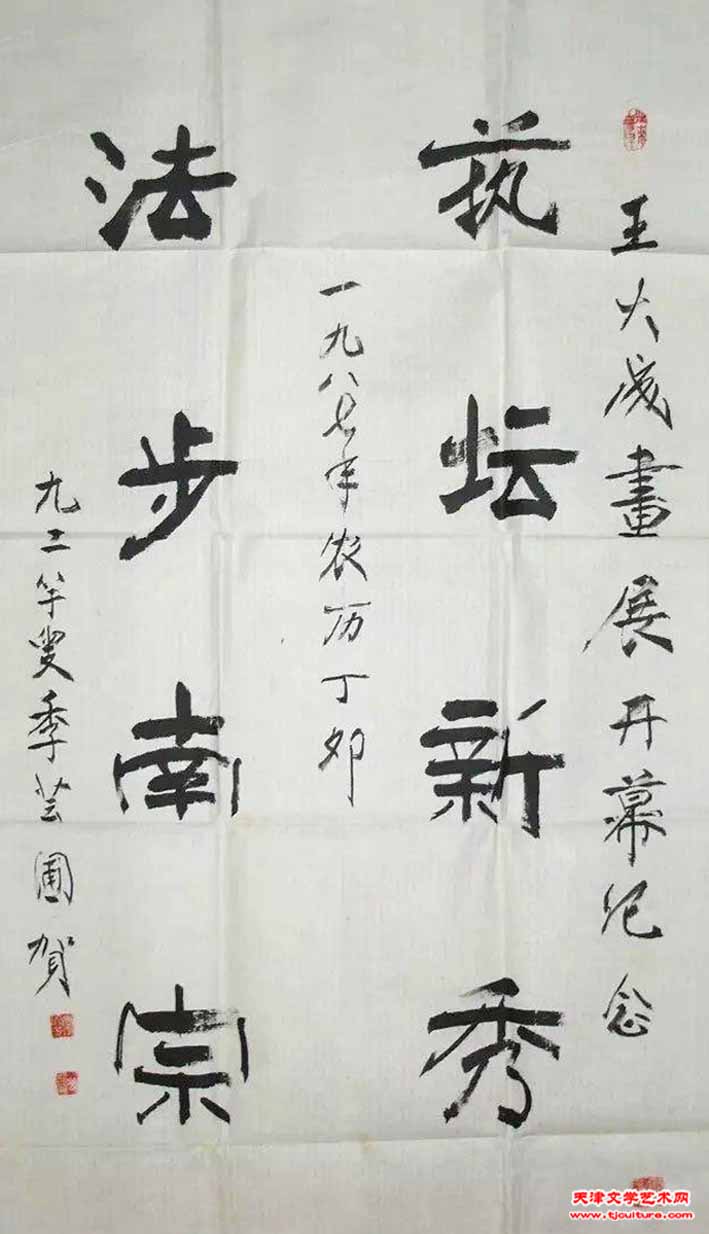 王大成畫展开幕纪念
艺坛新秀
一九八七年农历丁卯
法步南宗
九二年叟季芸圃贺
天津文学艺术网
www.tjculture.com